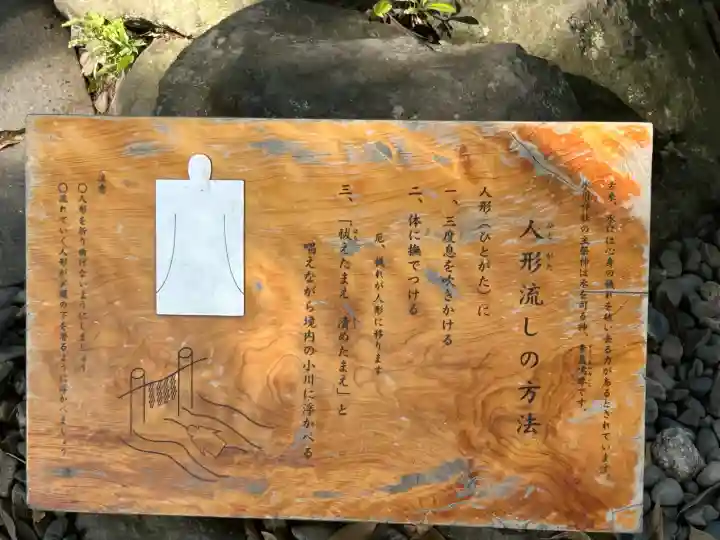 古来、水には心身の穢れを祓い去る力があるとされています。
氷川神社の主祭神は水を司る神、素盞嗚尊です。
人形流しの方法
人形(ひとがた)に
一、三度息を吹きかける
二、体に撫でつける
厄、穢れが人形に移ります
三、「祓えたまえ 清めたまえ」と
唱えながら境内の小川に浮かべる
注意
〇人形を折り曲げないようにしましょう
〇流れていく人形が〆縄の下を潜るように浮かべましょう